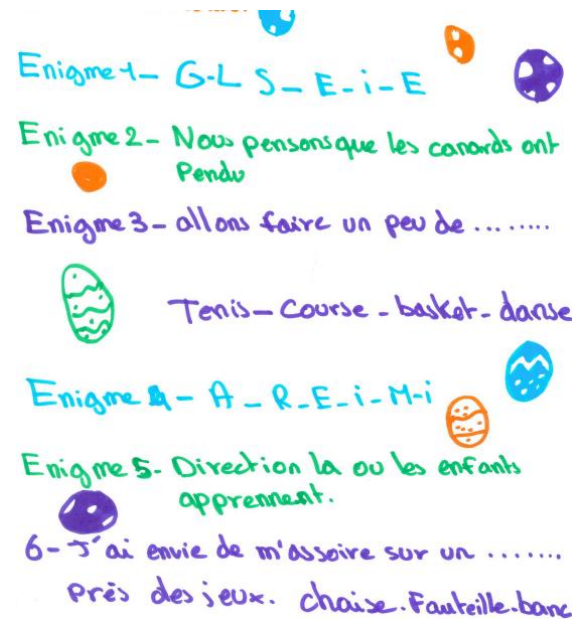 Enigme 1- G-L S-E-i-E
Enigme 2- Nous pensons que les canards ont
Pendu
Enigme 3- allons faire un peu de ........
Tenis-Course-basket-danse
Enigme 4- A-R-E-i-M-i
Enigme 5- Direction la ou les enfants
apprennent.
6- J'ai envie de m'assoire sur un .......
Près des jeux. chaise.Fauteille.banc